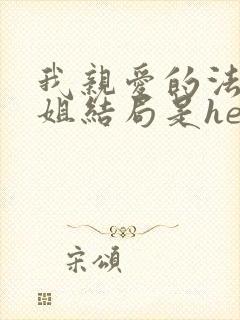 我親愛的法
姐結局是he
宋頌